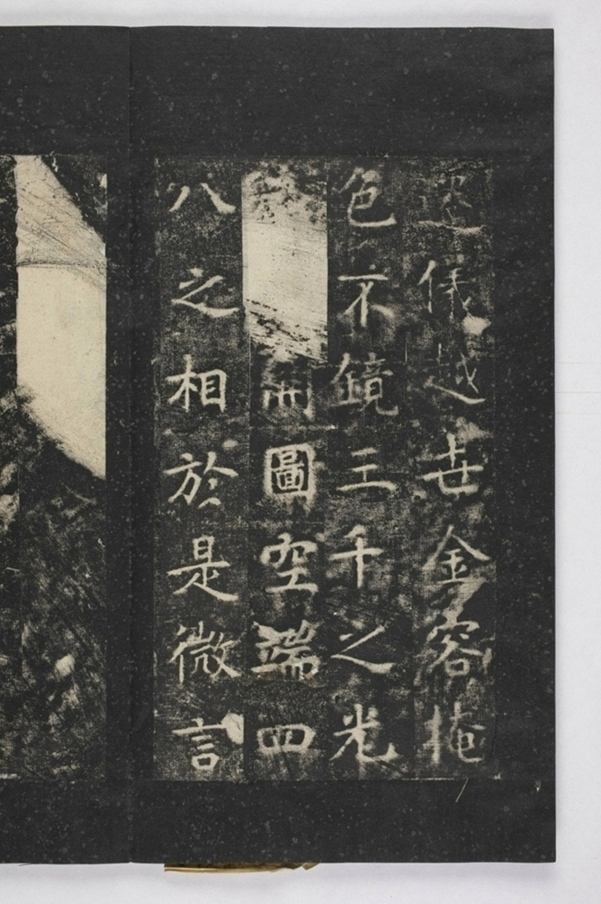 遷儀越世金容掩
色不鏡三千之光
開圖空端四
八之相於是微言